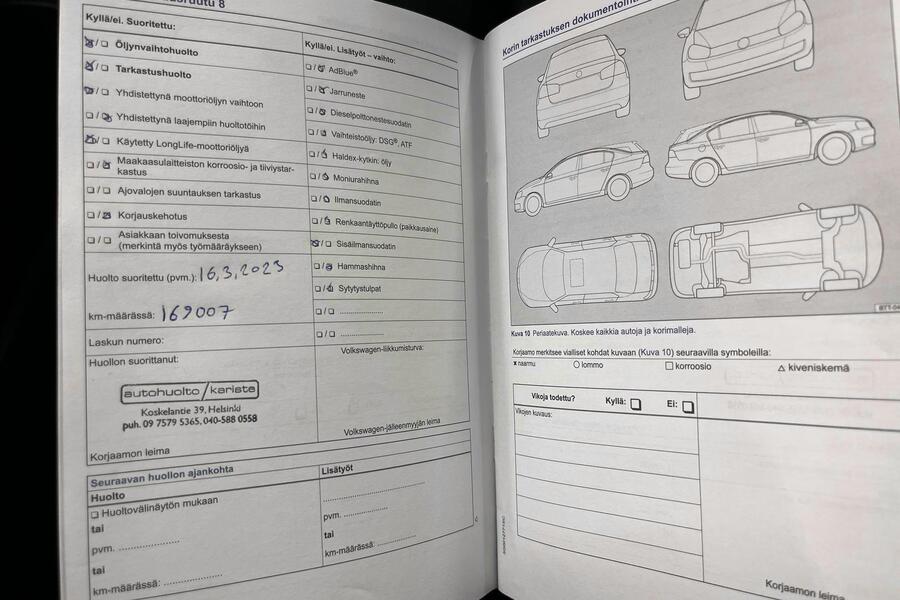 8
Kyllä/ei. Suoritettu:
Öljynvaihtohuolto
Tarkastushuolto
Yhdistettynä moottoriöljyn vaihtoon
Yhdistettynä laajempiin huoltotöihin
Käytetty LongLife-moottoriöljyä
Maakaasulaitteiston korroosio- ja tiiviystar-
kastus
Ajovalojen suuntauksen tarkastus
Korjauskehotus
Asiakkaan toivomuksesta
(merkintä myös työmääräykseen)
Huolto suoritettu (pvm.): 16.3.2023
km-määrässä: 169007
Laskun numero:
Huollon suorittanut:
autohuolto/kariste
Koskelantie 39, Helsinki
puh. 09 7579 5365, 040-588 0558
Korjaamon leima
Kyllä/ei. Lisätyöt – vaihto:
AdBlue®
Jarruneste
Dieselpolttonestesuodatin
Vaihteistoöljy: DSG®, ATF
Haldex-kytkin: öljy
Moniurahihna
Ilmansuodatin
Renkaantäyttöpullo (paikkausaine)
Sisäilmansuodatin
Hammashihna
Sytytystulpat
Volkswagen-liikkumisturva:
Volkswagen-jälleenmyyjän leima
Seuraavan huollon ajankohta
Huolto
Huoltovälinäytön mukaan
tai
pvm. ....................
tai
km-määrässä: ....................
Lisätyöt
pvm. ..............
tai
km-määrässä: ..............
Korin tarkastuksen
Kuva 10 Periaatekuva. Koskee kaikkia autoja ja korimalleja.
Korjaamo merkitsee vialliset kohdat kuvaan (Kuva 10) seuraavilla symboleilla:
x naarmu ○ lommo □ korroosio △ kiveniskemä
Vikoja todettu? Kyllä: Ei:
Vikojen kuvaus:
Korjaamon leima